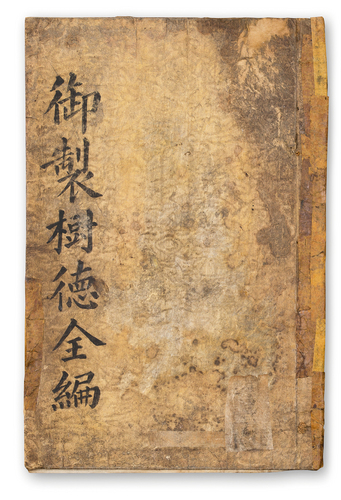 御製樹德全編